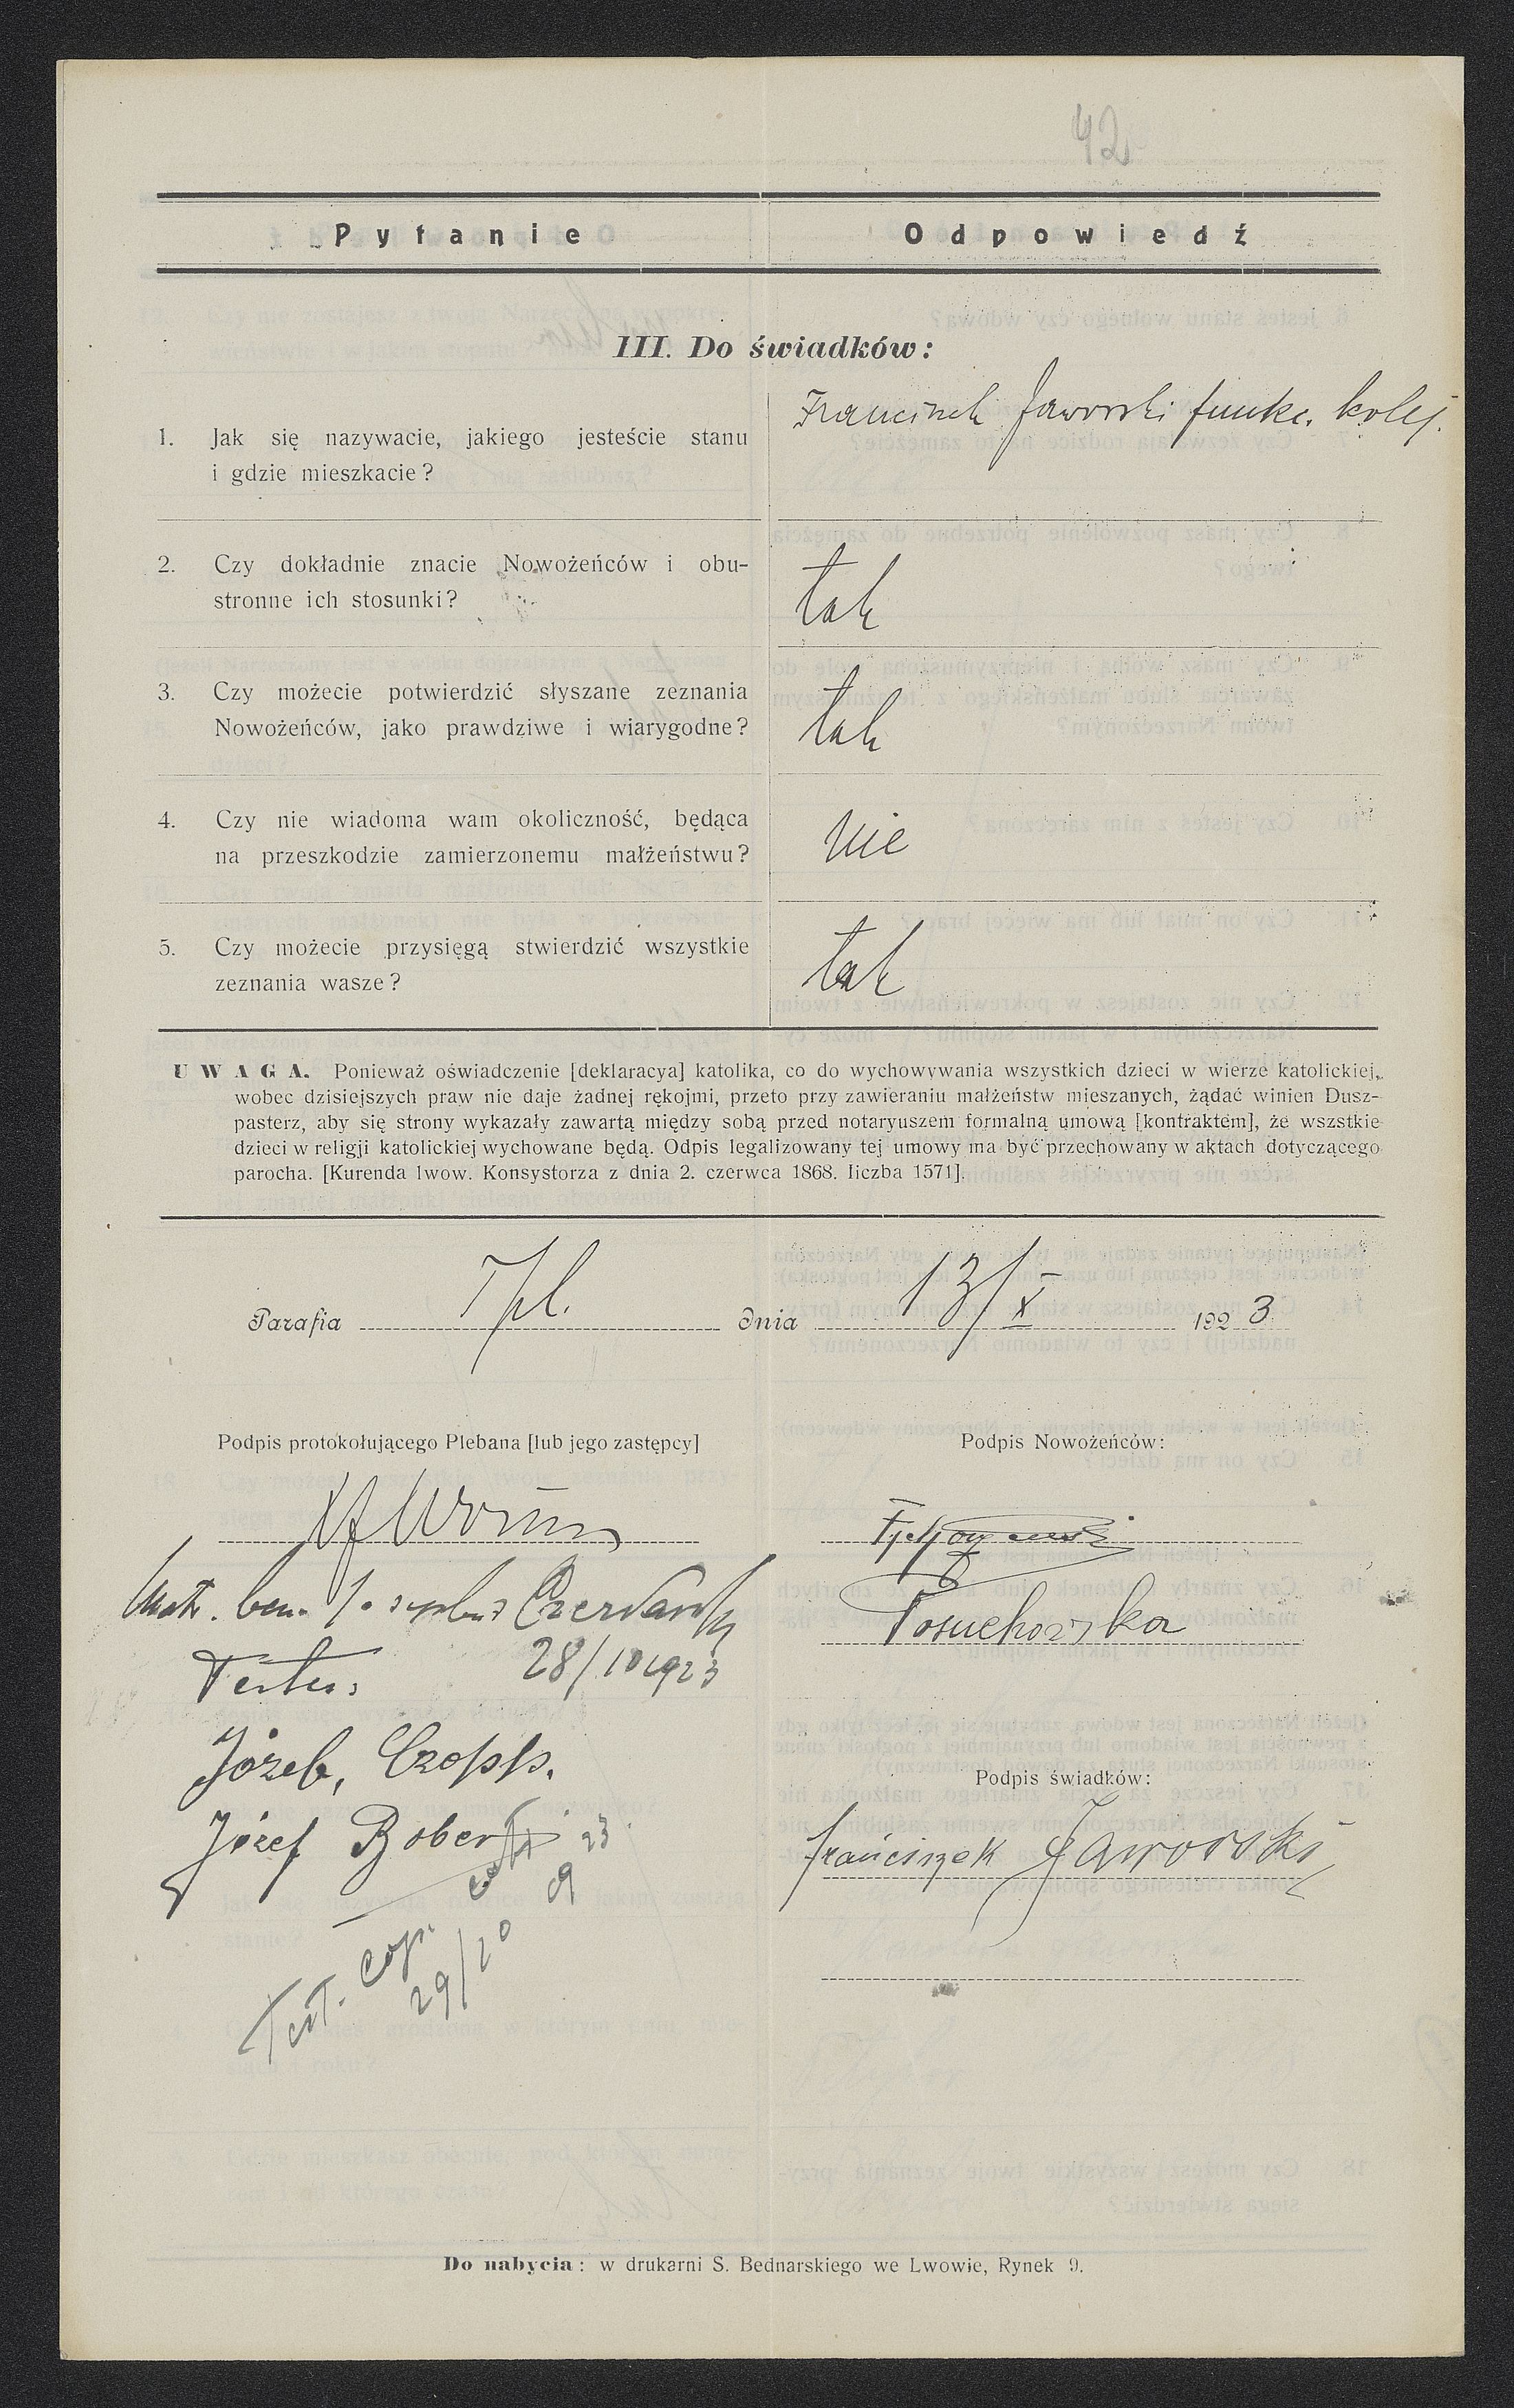 42
Pytanie Odpowiedź
III. Do świadków:
1. Jak się nazywacie, jakiego jesteście stanu
i gdzie mieszkacie?
Franciszek Jaworski funkc. kolej.
2. Czy dokładnie znacie Nowożeńców i obu-
stronne ich stosunki?
tak
3. Czy możecie potwierdzić słyszane zeznania
Nowożeńców, jako prawdziwe i wiarygodne?
tak
4. Czy nie wiadoma wam okoliczność, będąca
na przeszkodzie zamierzonemu małżeństwu?
nie
5. Czy możecie przysięgą stwierdzić wszystkie
zeznania wasze?
tak
UWAGA. Ponieważ oświadczenie [deklaracya] katolika, co do wychowywania wszystkich dzieci w wierze katolickiej,
wobec dzisiejszych praw nie daje żadnej rękojmi, przeto przy zawieraniu małżeństw mieszanych, żądać winien Dusz-
pasterz, aby się strony wykazały zawartą między sobą przed notaryuszem formalną umową [kontraktem], że wszstkie
dzieci w religji katolickiej wychowane będą. Odpis legalizowany tej umowy ma być przechowany w aktach dotyczącego
parocha. [Kurenda lwow. Konsystorza z dnia 2. czerwca 1868. liczba 1571].
Parafia dnia 13/X 1923
Podpis protokołującego Plebana [lub jego zastępcy]
Podpis Nowożeńców:
Matr. ben.
28/10 1923
Testes:
Józef Czopp.
Józef Bober
Podpis świadków:
Franciszek Jaworski
Test. cop.
29/10 23
Do nabycia: w drukarni S. Bednarskiego we Lwowie, Rynek 9.